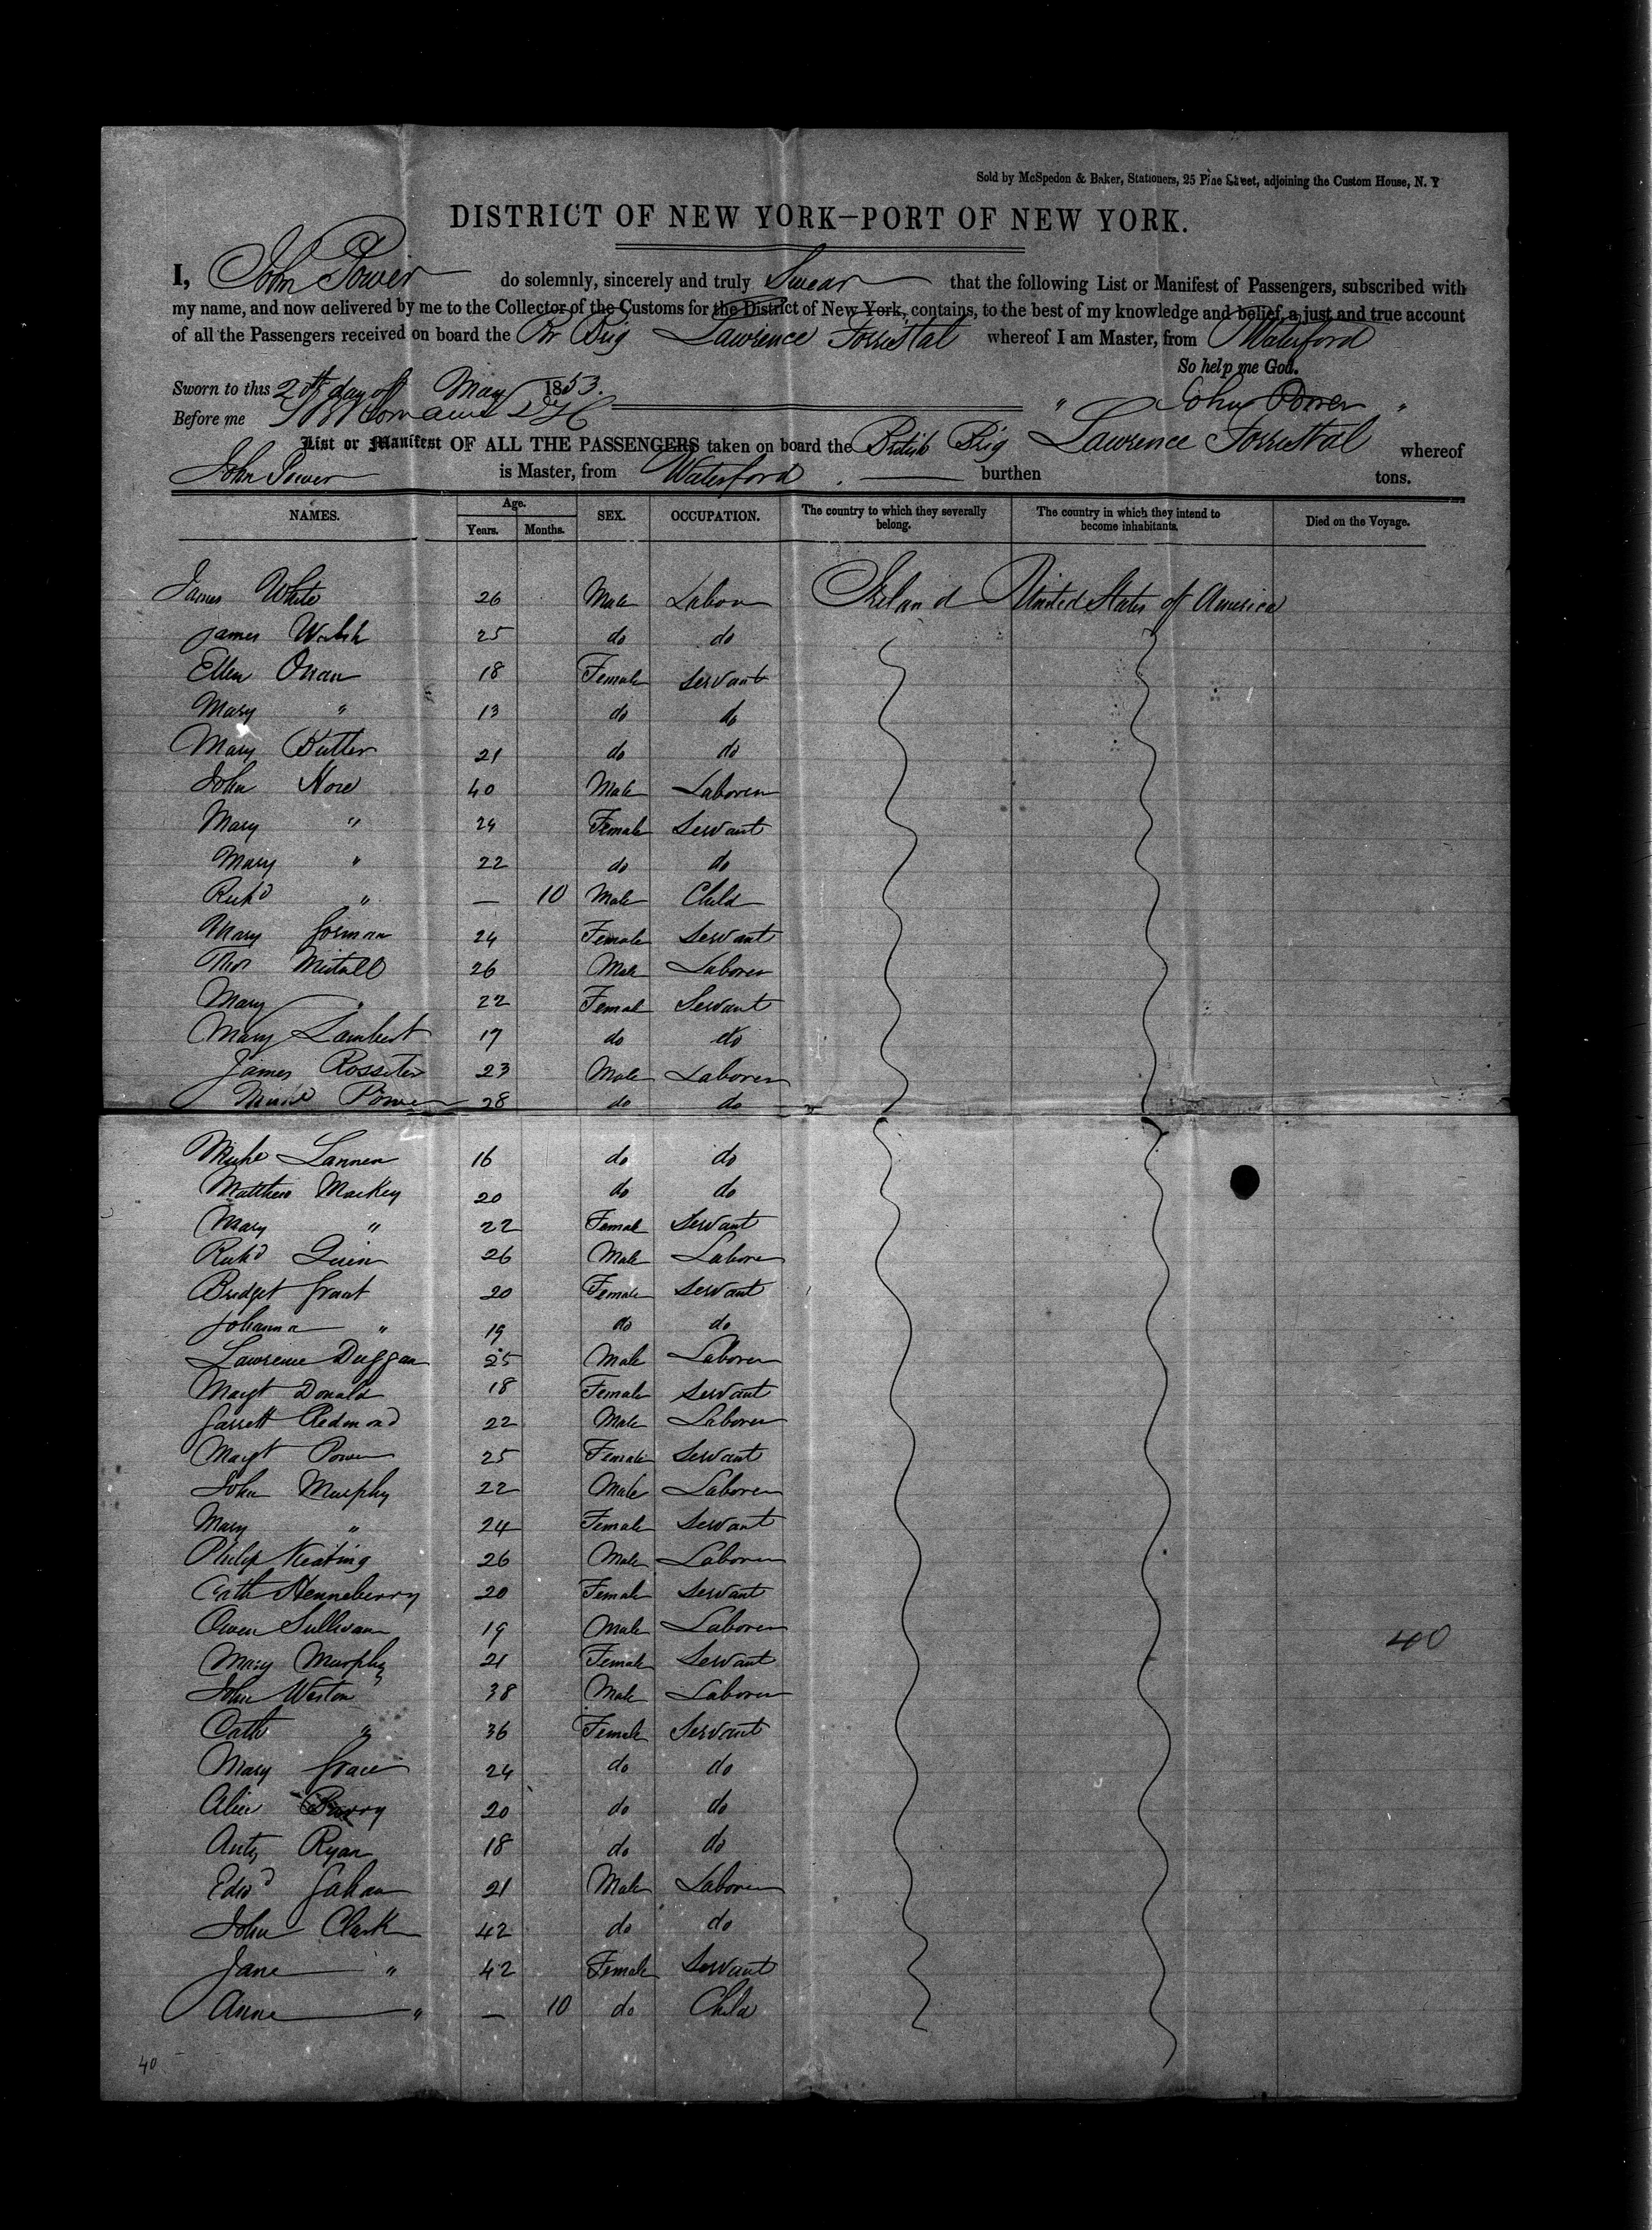 Sold by McSpedon & Baker, Stationers, 25 Pine Street, adjoining the Custom House, N. Y
DISTRICT OF NEW YORK—PORT OF NEW YORK.
I, John Power do solemnly, sincerely and truly Swear that the following List or Manifest of Passengers, subscribed with
my name, and now delivered by me to the Collector of the Customs for the District of New York, contains, to the best of my knowledge and belief, a just and true account
of all the Passengers received on board the Br Brig Lawrence Forristal whereof I am Master, from Waterford
So help me God.
Sworn to this 20th day of May 1853.
" John Power "
Before me
List or Manifest OF ALL THE PASSENGERS taken on board the British Brig Lawrence Forrestal whereof
John Power is Master, from Waterford burthen tons.
NAMES. Age. Years. Months. SEX. OCCUPATION. The country to which they severally belong. The country in which they intend to become inhabitants. Died on the Voyage.
James White 26 Male Labor Ireland United States of America
James Walsh 25 do do
Ellen 18 Female Servant
Mary " 13 do do
Mary Butler 21 do do
John Hore 40 Male Laborer
Mary " 24 Female Servant
Mary " 22 do do
Richd " — 10 Male Child
Mary Gorman 24 Female Servant
Thos 26 Male Laborer
Mary " 22 Female Servant
Mary Lambert 17 do do
James Rossiter 23 Male Laborer
Michl Power 28 do do
Michl Lannen 16 do do
Matthew Mackey 20 do do
Mary " 22 Female Servant
Richd Quin 26 Male Laborer
Bridget Grant 20 Female Servant
Johanna " 19 do do
Lawrence Duggan 25 Male Laborer
Margt Donald 18 Female Servant
Garrett Redmond 22 Male Laborer
Margt Power 25 Female Servant
John Murphy 22 Male Laborer
Mary " 24 Female Servant
Philip Keating 26 Male Laborer
Cath Henneberry 20 Female Servant
Owen Sullivan 19 Male Laborer
40
Mary Murphy 21 Female Servant
John Weston 38 Male Laborer
Cath " 36 Female Servant
Mary Grace 24 do do
Alice 20 do do
Anty Ryan 18 do do
Edwd Gahan 21 Male Laborer
John Clark 42 do do
Jane " 42 Female Servant
Anne " — 10 do Child
40